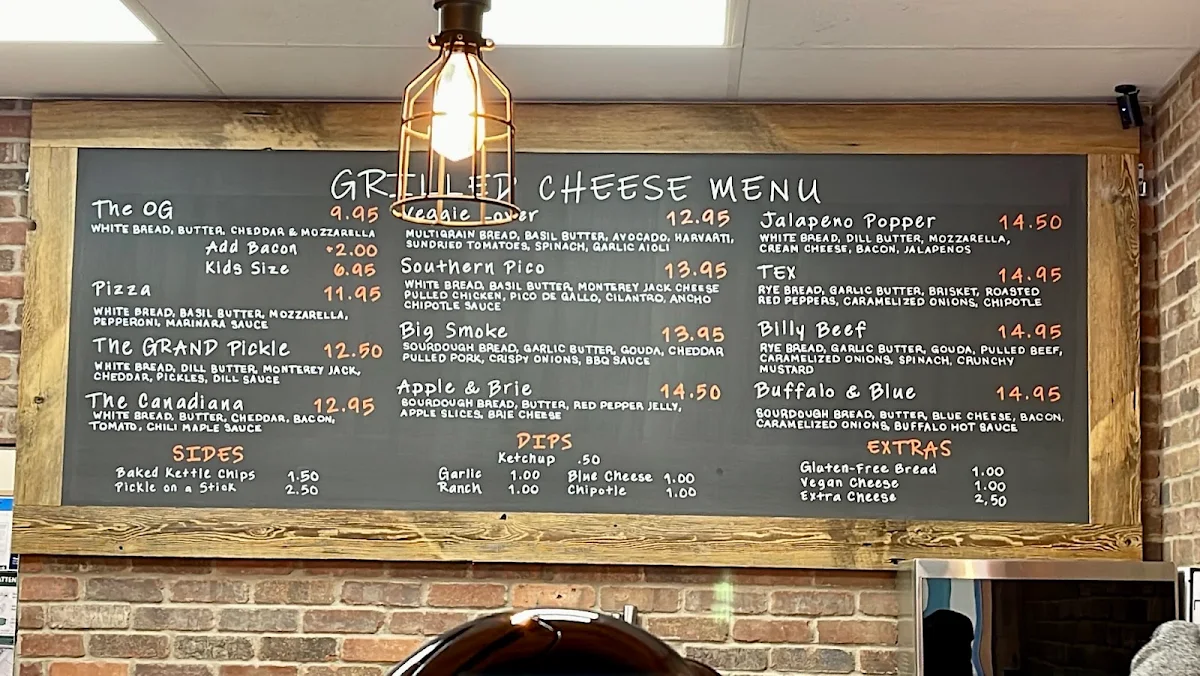 GRILLED CHEESE MENU
The OG 9.95
WHITE BREAD, BUTTER, CHEDDAR & MOZZARELLA
Add Bacon +2.00
Kids Size 6.95
Pizza 11.95
WHITE BREAD, BASIL BUTTER, MOZZARELLA,
PEPPERONI, MARINARA SAUCE
The GRAND Pickle 12.50
WHITE BREAD, DILL BUTTER, MONTEREY JACK,
CHEDDAR, PICKLES, DILL SAUCE
The Canadiana 12.95
WHITE BREAD, BUTTER, CHEDDAR, BACON,
TOMATO, CHILI MAPLE SAUCE
SIDES
Baked Kettle Chips 1.50
Pickle on a Stick 2.50
Veggie Lover 12.95
MULTIGRAIN BREAD, BASIL BUTTER, AVOCADO, HARVARTI,
SUNDRIED TOMATOES, SPINACH, GARLIC AIOLI
Southern Pico 13.95
WHITE BREAD, BASIL BUTTER, MONTEREY JACK CHEESE
PULLED CHICKEN, PICO DE GALLO, CILANTRO, ANCHO
CHIPOTLE SAUCE
Big Smoke 13.95
SOURDOUGH BREAD, GARLIC BUTTER, GOUDA, CHEDDAR
PULLED PORK, CRISPY ONIONS, BBQ SAUCE
Apple & Brie 14.50
SOURDOUGH BREAD, BUTTER, RED PEPPER JELLY,
APPLE SLICES, BRIE CHEESE
DIPS
Ketchup .50
Garlic 1.00 Blue Cheese 1.00
Ranch 1.00 Chipotle 1.00
Jalapeno Popper 14.50
WHITE BREAD, DILL BUTTER, MOZZARELLA,
CREAM CHEESE, BACON, JALAPENOS
TEX 14.95
RYE BREAD, GARLIC BUTTER, BRISKET, ROASTED
RED PEPPERS, CARAMELIZED ONIONS, CHIPOTLE
Billy Beef 14.95
RYE BREAD, GARLIC BUTTER, GOUDA, PULLED BEEF,
CARAMELIZED ONIONS, SPINACH, CRUNCHY
MUSTARD
Buffalo & Blue 14.95
SOURDOUGH BREAD, BUTTER, BLUE CHEESE, BACON,
CARAMELIZED ONIONS, BUFFALO HOT SAUCE
EXTRAS
Gluten-Free Bread 1.00
Vegan Cheese 1.00
Extra Cheese 2,50